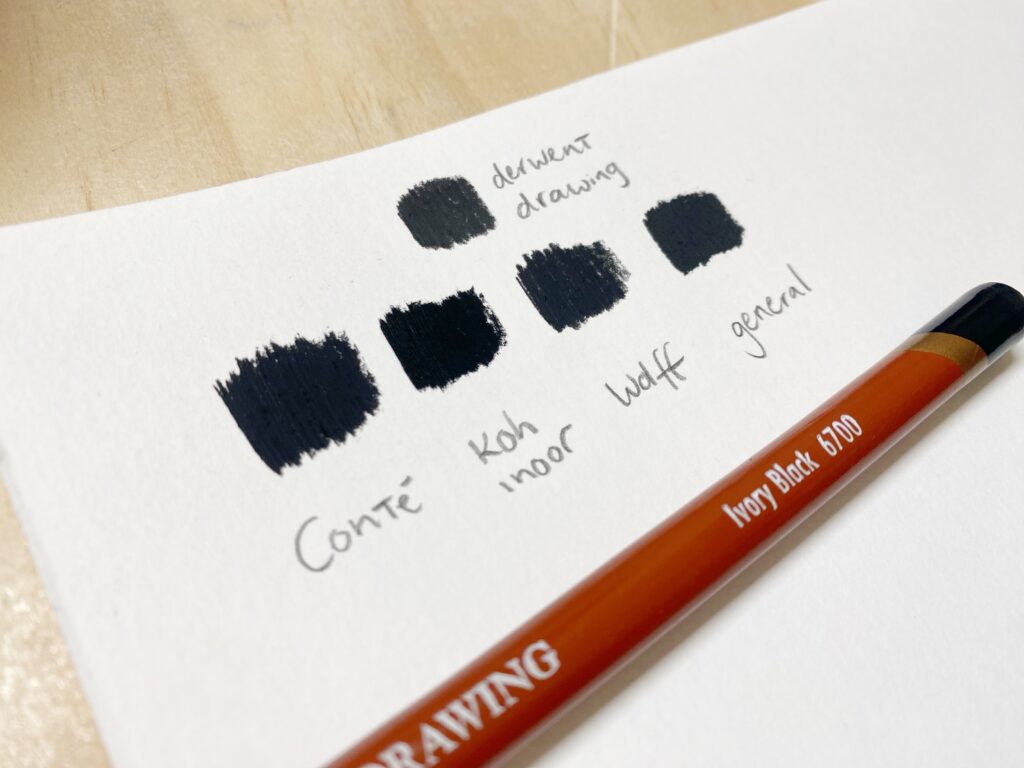 derwent
drawing
Conté
Koh
inoor
Wolff
general
Ivory Black 6700
DRAWING